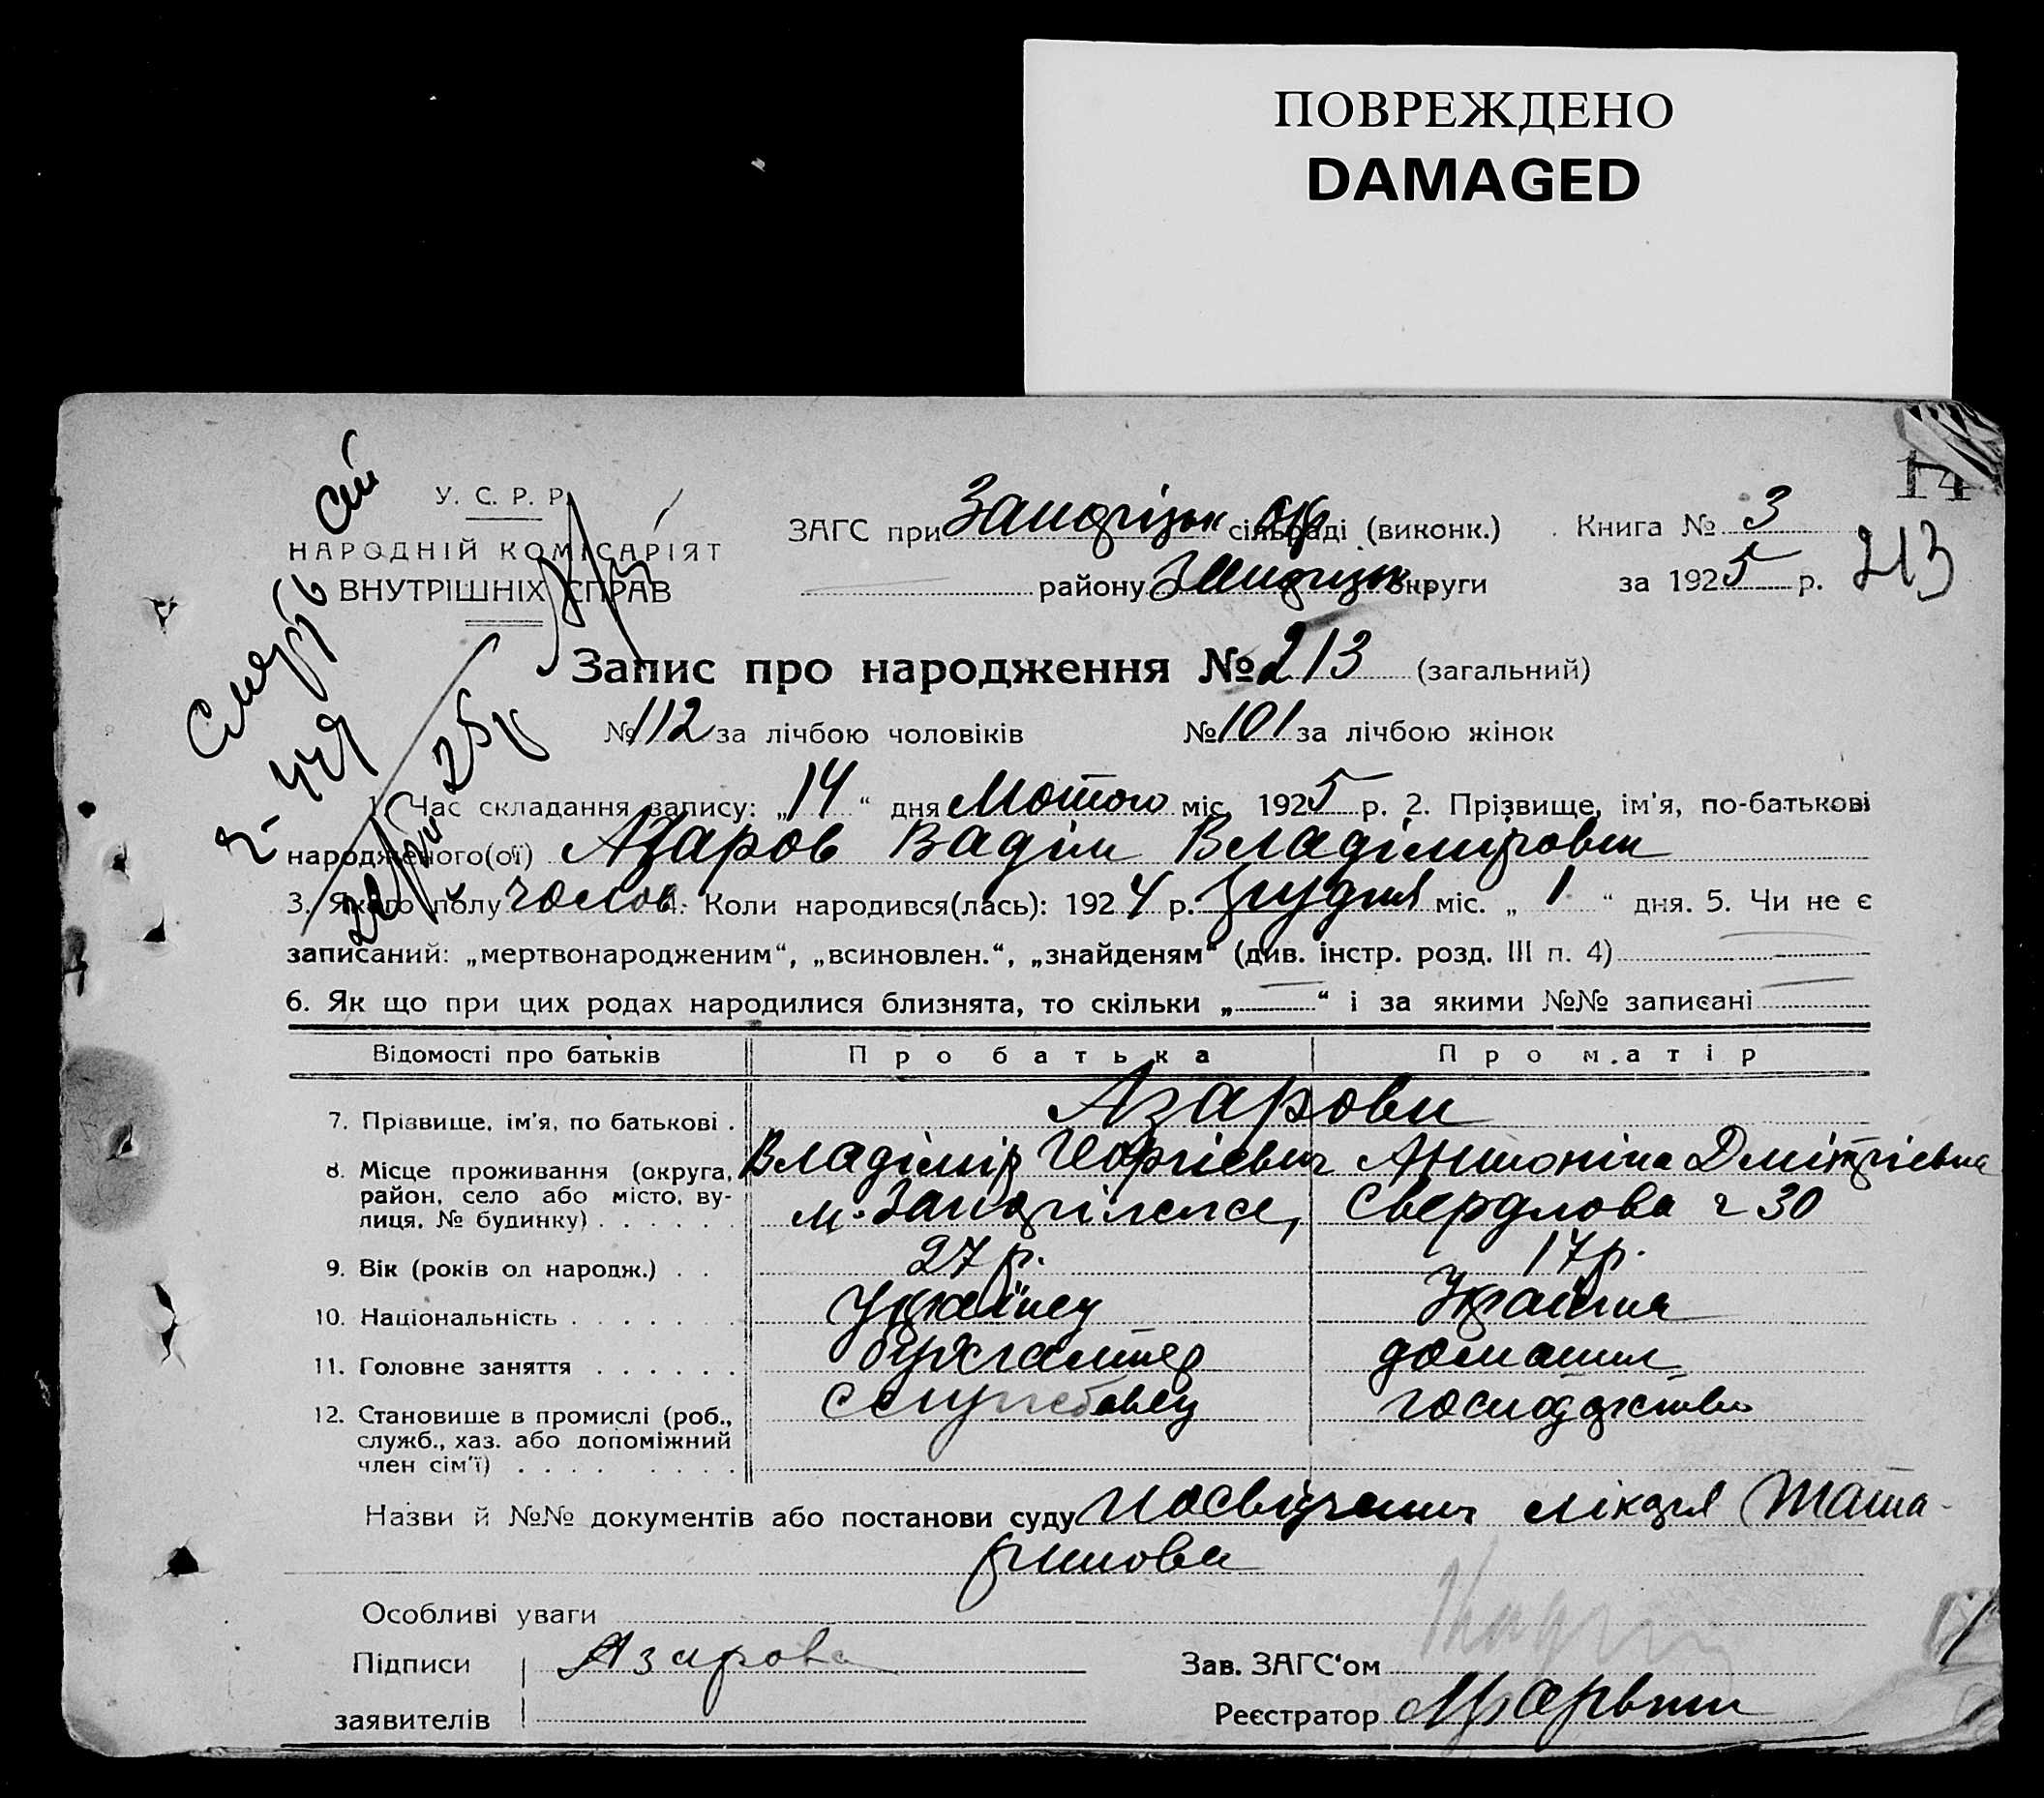 ПОВРЕЖДЕНО
DAMAGED
14
У. С. Р. Р.
НАРОДНІЙ КОМІСАРІЯТ
ВНУТРІШНІХ СПРАВ
ЗАГС при Запоріжк окр сільраді (виконк.)
району Запорізьк округи
Книга № 3
за 1925 р.
213
Смерть
Запис про народження № 213 (загальний)
№ 112 за лічбою чоловіків № 101 за лічбою жінок
1. Час складання запису: „14“ дня Лютого міс. 1925 р. 2. Прізвище, ім'я, по-батькові
народженого(ої) Азаров Вадім Владімірович
3. Якого полу чолов. 4. Коли народився(лась): 1924 р. грудня міс. „1“ дня. 5. Чи не є
записаний: „мертвонародженим“, „всиновлен.“, „знайденям“ (див. інстр. розд. III п. 4)
6. Як що при цих родах народилися близнята, то скільки „ “ і за якими №№ записані
Відомості про батьків Про батька Про матір
7. Прізвище, ім'я, по батькові . Азарови
Владімір Георгіевич Антоніна Дмітріевна
8. Місце проживання (округа, район, село або місто, вулиця, № будинку) . . . . . . м. Запоріжже, Свердлова 30
9. Вік (років од народж.) . . 27 р. 17 р.
10. Національність . . . . . . . Українец Українка
11. Головне заняття . . . . . . бухгалтер домашнє
12. Становище в промислі (роб., служб., хаз. або допоміжний член сім'ї) . . . . . . . . службовец господарство
Назви й №№ документів або постанови суду Посвідчення лікаря Тата-
ринова
Особливі уваги
Підписи Азарова
заявителів
Зав. ЗАГС'ом
Реєстратор